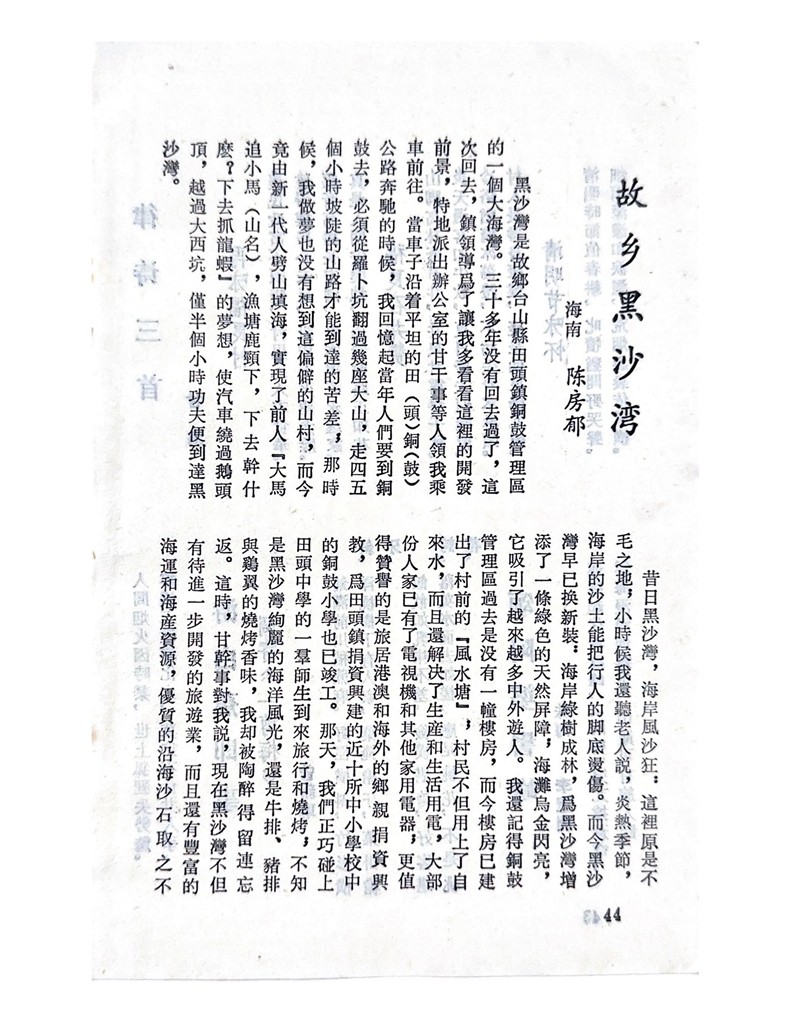 故乡黑沙湾
海南 陈房郁
黑沙灣是故鄉台山縣田頭鎮銅鼓管理區
的一個大海灣。三十多年没有回去過了，這
次回去，鎮領導爲了讓我多看看這裡的開發
前景，特地派出辦公室的甘干事等人領我乘
車前往。當車子沿着平坦的田（頭）銅（鼓）
公路奔馳的時候，我回憶起當年人們要到銅
鼓去，必須從羅卜坑翻過幾座大山，走四五
個小時坡陡的山路才能到達的苦差；那時
候，我做夢也没有想到這偏僻的山村，而今
竟由新一代人劈山填海，實現了前人『大馬
追小馬（山名），漁塘鹿頸下，下去幹什
麽？下去抓龍蝦』的夢想，使汽車繞過鵝頭
頂，越過大西坑，僅半個小時功夫便到達黑
沙灣。
昔日黑沙灣，海岸風沙狂：這裡原是不
毛之地，小時候我還聽老人説，炎熱季節，
海岸的沙土能把行人的脚底燙傷。而今黑沙
灣早已换新裝：海岸綠樹成林，爲黑沙灣增
添了一條綠色的天然屏障，海灘烏金閃亮，
它吸引了越來越多中外遊人。我還記得銅鼓
管理區過去是没有一幢樓房，而今樓房已建
出了村前的『風水塘』，村民不但用上了自
來水，而且還解决了生産和生活用電，大部
份人家已有了電視機和其他家用電器，更值
得贊譽的是旅居港澳和海外的鄉親捐資興
教，爲田頭鎮捐資興建的近十所中小學校中
的銅鼓小學也已竣工。那天，我們正巧碰上
田頭中學的一羣師生到來旅行和燒烤，不知
是黑沙灣絢麗的海洋風光，還是牛排、豬排
與鷄翼的燒烤香味，我却被陶醉得留連忘
返。這時，甘幹事對我説，現在黑沙灣不但
有待進一步開發的旅遊業，而且還有豐富的
海運和海産資源，優質的沿海沙石取之不
44